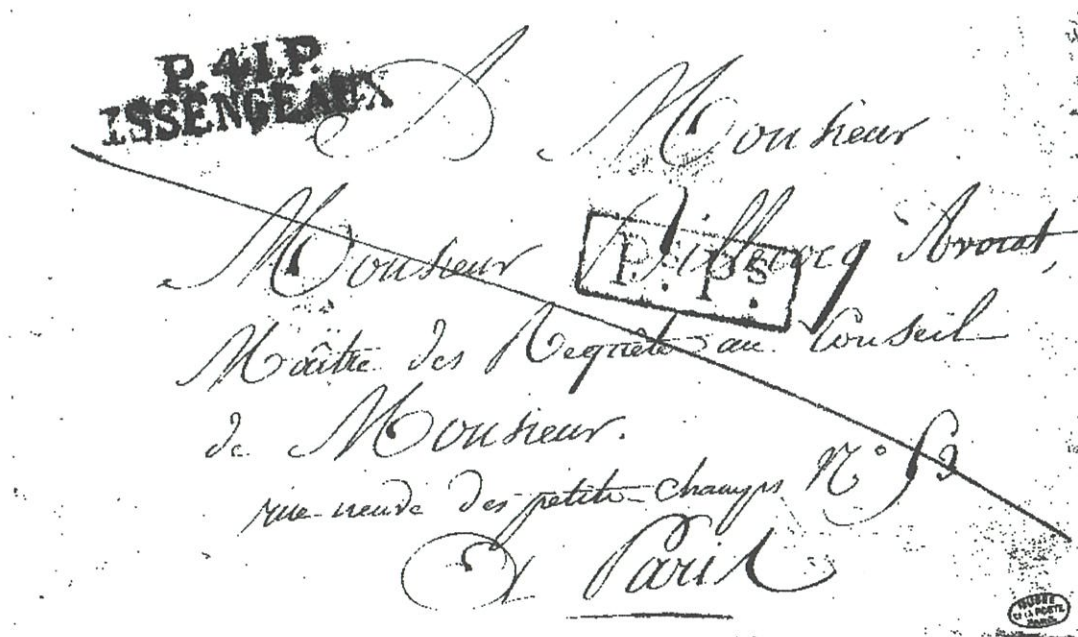 P.41.P.
ISSENGEAUX
A Monsieur
Monsieur Billecocq Avocat,
P. P.
Maître des Requêtes au Conseil
de Monsieur.
rue neuve des petits-champs N°
A Paris
MUSEE
DE LA POSTE
PARIS